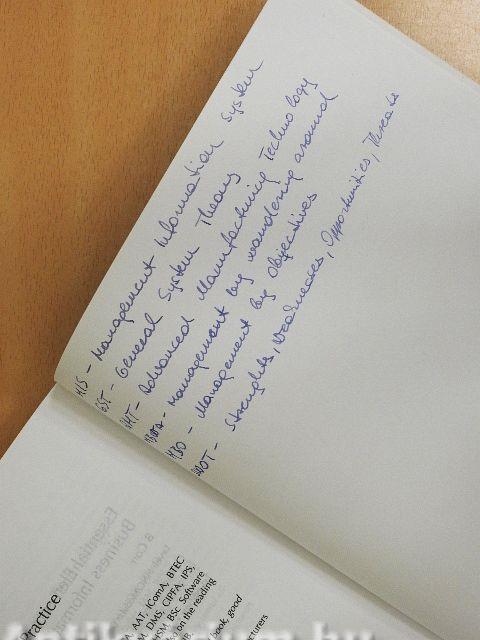 MIS - Management Information System
GST - General System Theory
AMT - Advanced Manufacturing Technology
MBWA - Management by wandering around
MBO - Management by Objectives
SWOT - Strenghts, Weaknesses, Opportunities, Threats
Essential
Business Inform
Practice
A, AAT, IComA, BTEC
M, DMS, CIPFA, IPS,
WSM, BSc Software
on the reading
book, good
cturers
Antikvarium.hu